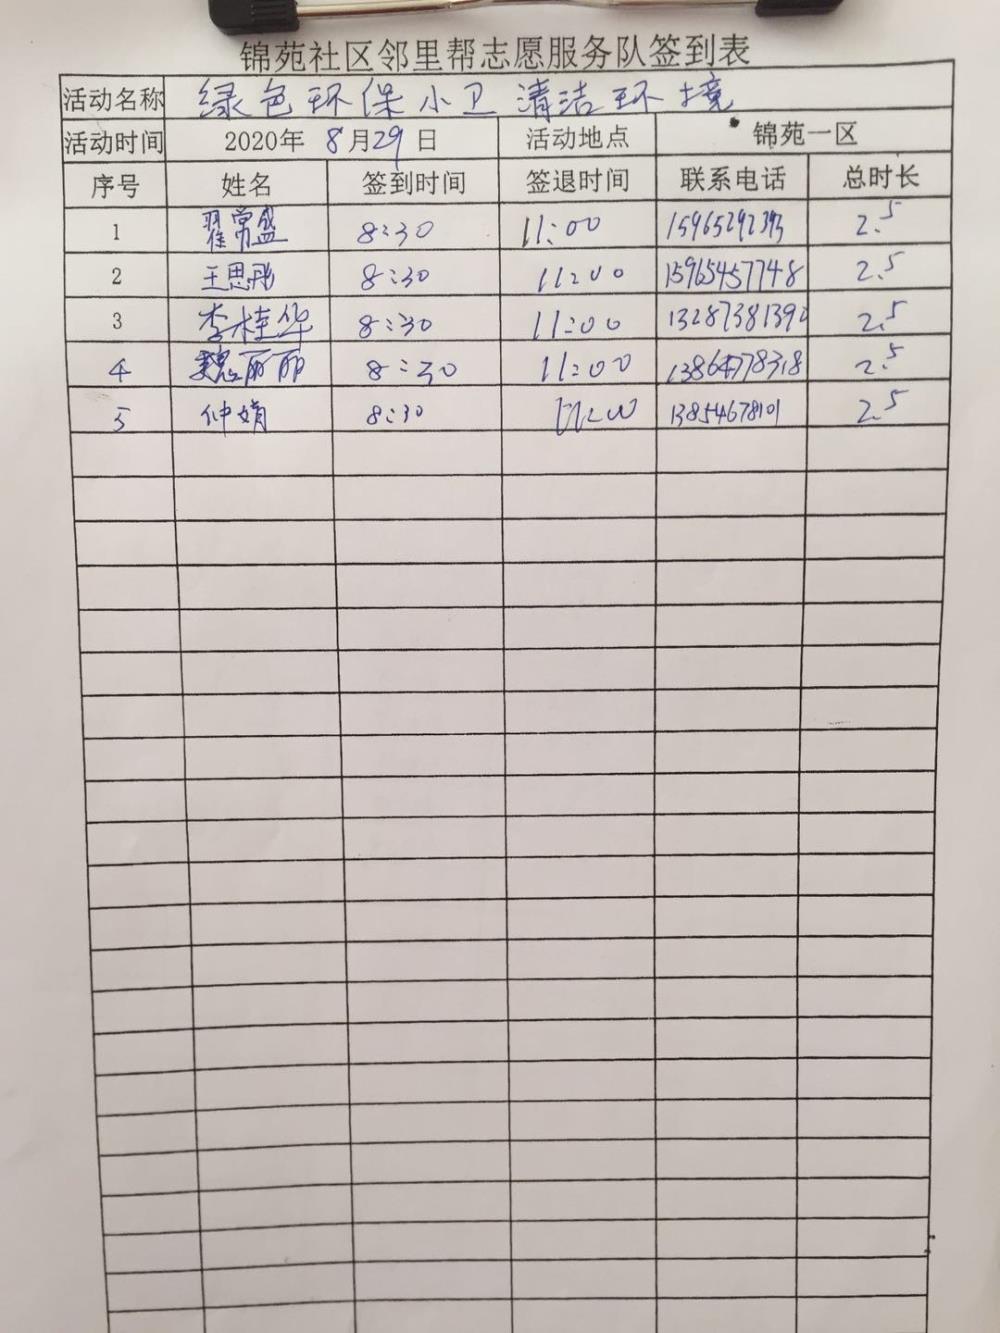 锦苑社区邻里帮志愿服务队签到表
活动名称 绿色环保小卫 清洁环境
活动时间 2020年 8月29日 活动地点 锦苑一区
序号 姓名 签到时间 签退时间 联系电话 总时长
1 翟常盛 8:30 11:00 2.5
2 王思彤 8:30 11:00 15965457748 2.5
3 李桂华 8:30 11:00 13287381392 2.5
4 魏丽丽 8:30 11:00 13864778318 2.5
5 仲娟 8:30 11:00 13854678101 2.5